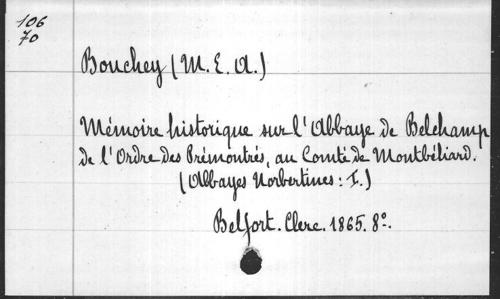 106
70
Bouchey (M. E. A.)
Mémoire historique sur l'Abbaye de Belchamp
de l'Ordre des Prémontrés, au Comté de Montbéliard.
(Abbayes Norbertines: I.)
Belfort. Clerc. 1865. 8º.